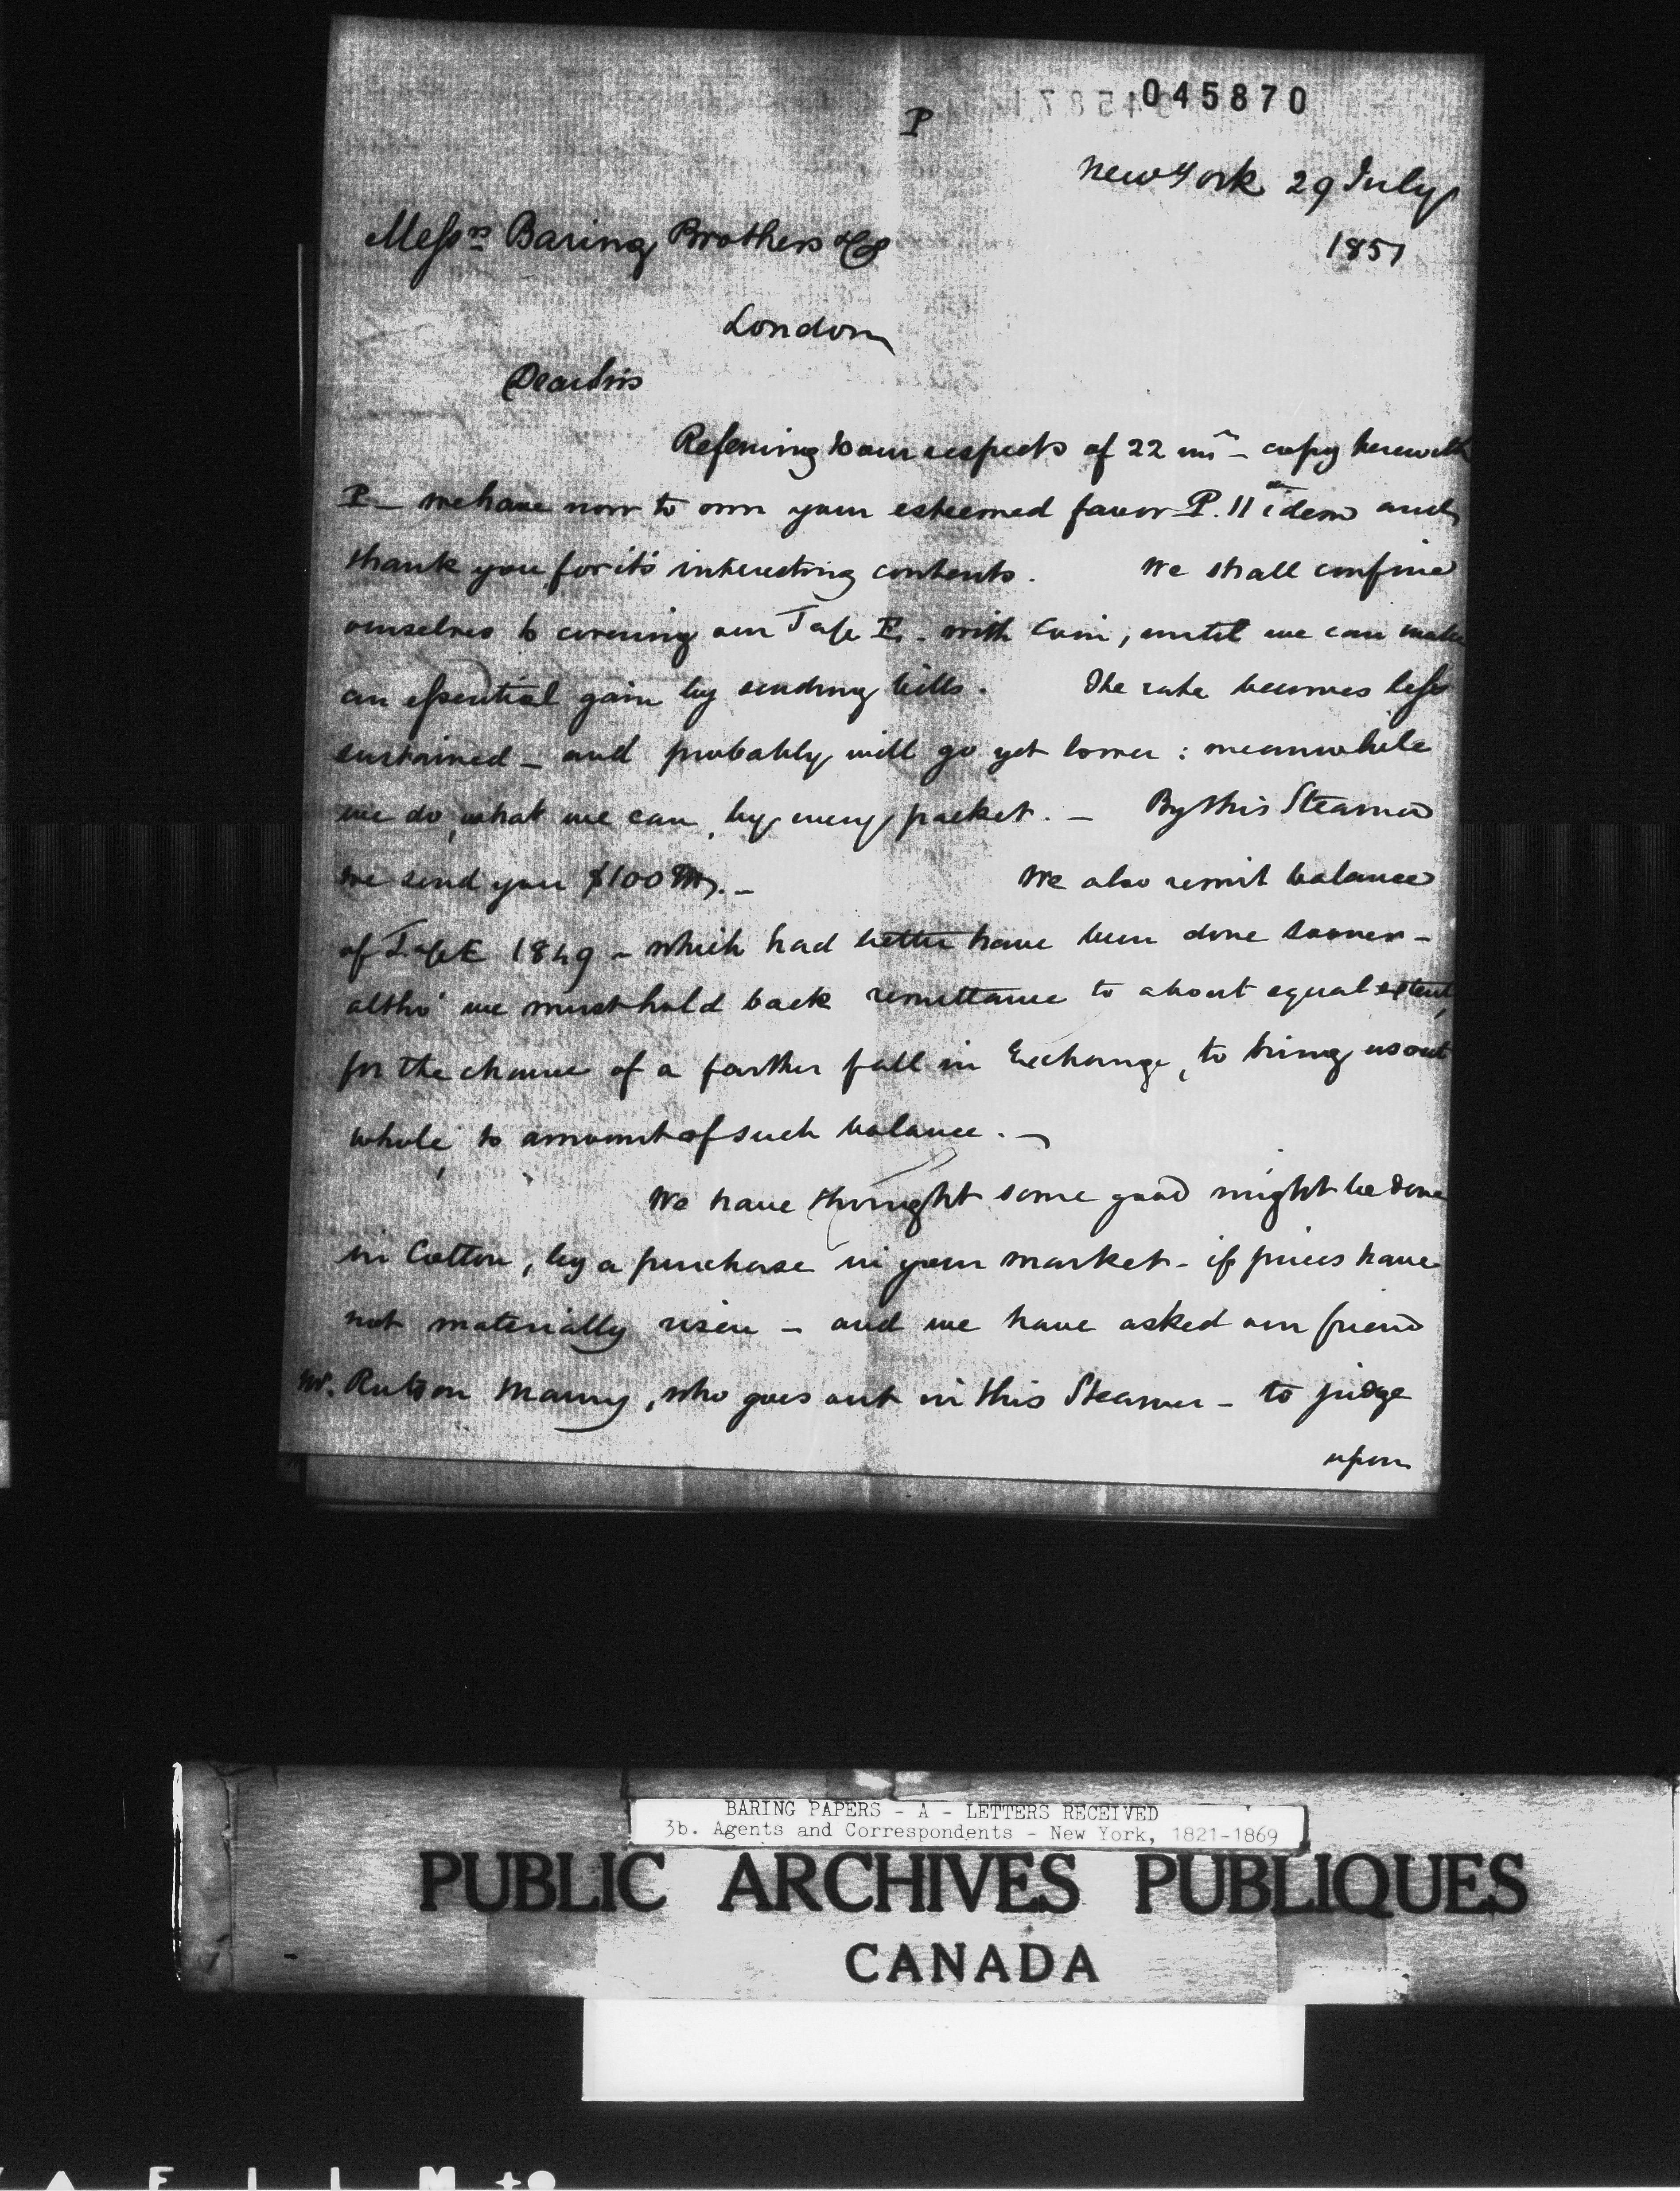 045870
P
New York 29 July
1851
Messrs Baring Brothers & Co
London
Dear Sirs
Referring to our respects of 22 inst - copy herewith
P - we have now to own your esteemed favor P. 11 idem and
thank you for it's interesting contents. We shall confine
ourselves to covering our E. with Coin, until we can make
an essential gain by sending bills. The rate becomes less
sustained - and probably will go yet lower : meanwhile
we do, what we can, by every packet. - By this Steamer
we send you $100 -
We also remit balance
of E 1849 - which had better have been done sooner -
altho' we must hold back remittance to about equal extent,
for the chance of a farther fall in Exchange, to bring us out
whole, to amount of such balance. -
We have thought some good might be done
in Cotton, by a purchase in your market - if prices have
not materially risen - and we have asked our friend
Mr. Rutson Maury, who goes out in this Steamer - to judge
upon
BARING PAPERS - A - LETTERS RECEIVED
3b. Agents and Correspondents - New York, 1821-1869
PUBLIC ARCHIVES PUBLIQUES
CANADA